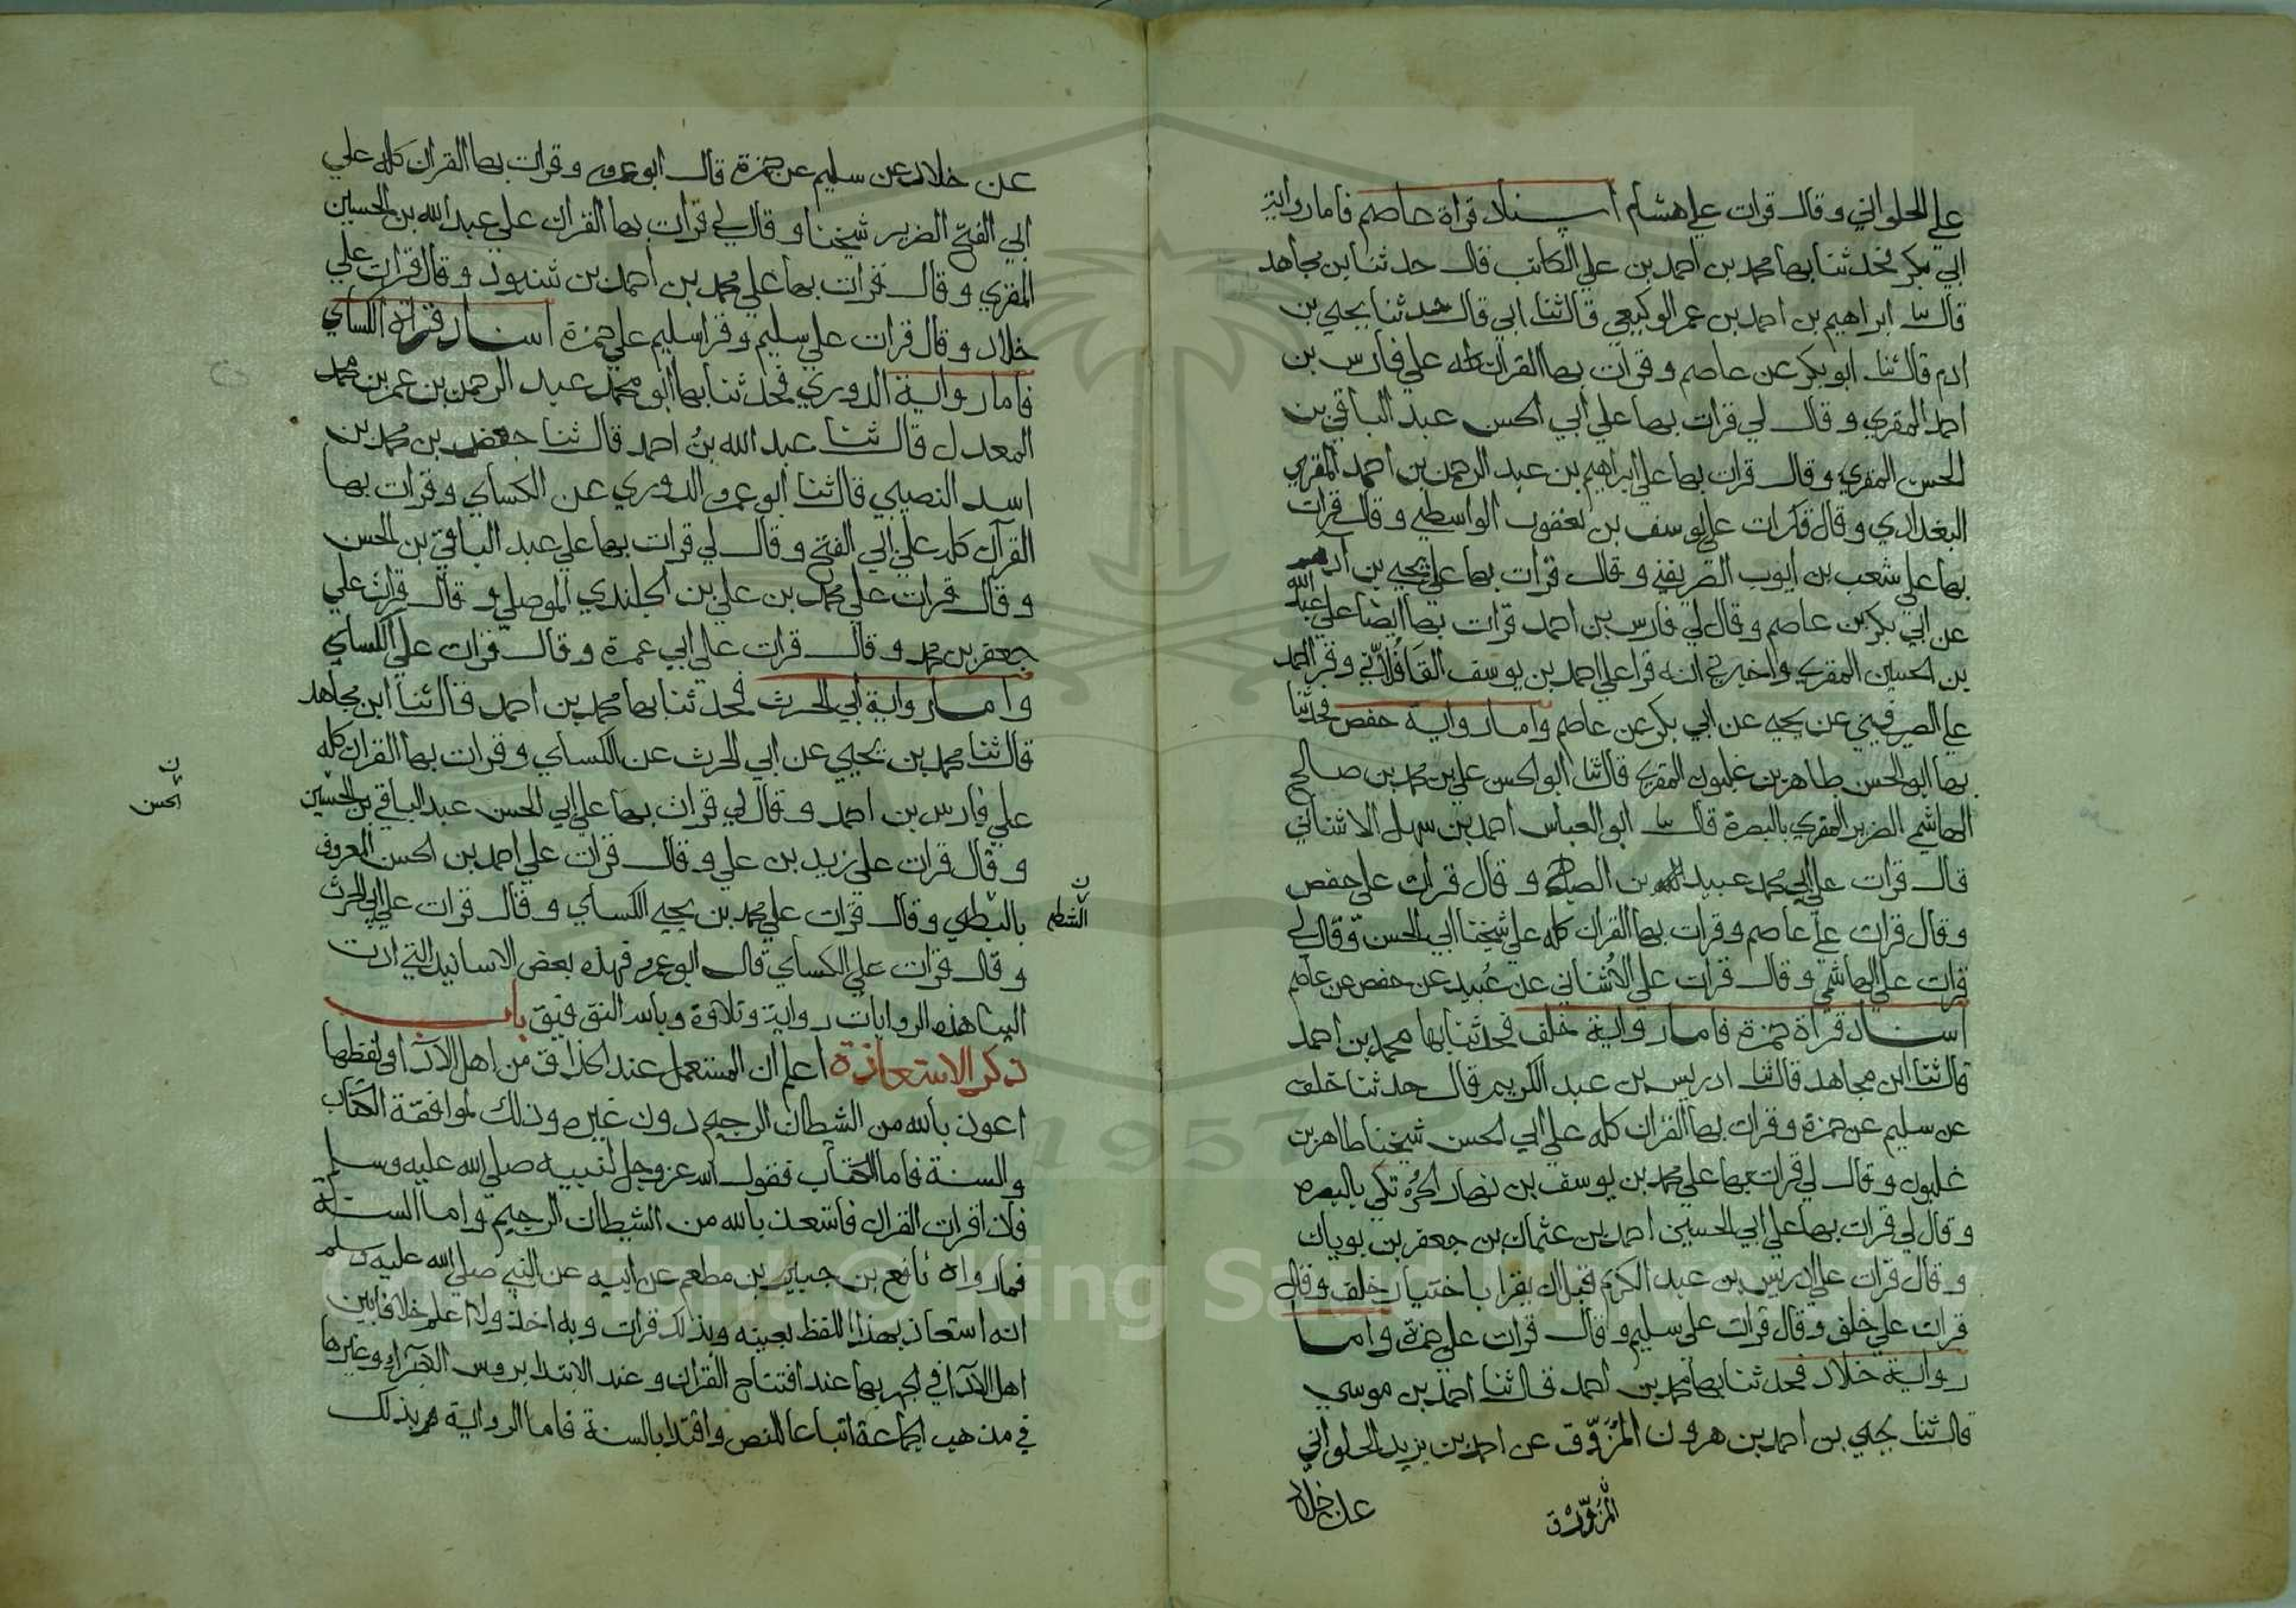 علي الحلواني وقال قرات علي هشام اسناد قراة عاصم فاما رواية
ابي بكر فحدثنا بها محمد بن احمد بن علي الكاتب قال حدثنا بن مجاهد
قال ثنا ابراهيم بن احمد بن عمر الوكيعي قال ثنا ابي قال حدثنا يحيي بن
ادم قال ثنا ابو بكر عن عاصم وقرات بها القران كله علي فارس بن
احمد المقري وقال لي قرات بها علي ابي الحسن عبد الباقي بن
الحسن المقري وقال قرات بها علي ابراهيم بن عبد الرحمن بن احمد المقري
البغدادي وقال قرات علي يوسف بن يعقوب الواسطي وقال قرات
بها علي شعيب بن ايوب الصريفيني وقال قرات بها علي يحيي بن ادم
عن ابي بكر بن عاصم وقال لي فارس بن احمد قرات بها ايضا علي عبد الله
بن الحسين المقري واخبرني انه قرا علي احمد بن يوسف القَافُلَانّي وقرا احمد
علي الصريفيني عن يحيي عن ابي بكر عن عاصم واما رواية حفص فحدثنا
بها ابو الحسن طاهر بن غلبون المقري قال ثنا ابو الحسن علي بن محمد بن صالح
الهاشمي الضرير المقري بالبصرة قال ثنا ابو العباس احمد بن سهل الاشناني
قال قرات علي ابي محمد عبيد بن الصباح وقال قرات علي حفص
وقال قرات علي عاصم وقرات بها القران كله علي شيخنا ابي الحسن وقال لي
قرات علي الهاشمي وقال قرات علي الاُشناني عن عُبيد عن حفص عن عاصم
اسناد قراة حمزة فاما رواية خلف فحدثنا بها محمد بن احمد
قال ثنا ابن مجاهد قال ثنا ادريس بن عبد الكريم قال حدثنا خلف
عن سليم عن حمزة وقرات بها القران كله علي ابي الحسن شيخنا طاهر بن
غلبون وقال لي قرات بها علي محمد بن يوسف بن نهار الحُرْتكي بالبصره
وقال لي قرات بها علي ابي الحسين احمد بن عثمان بن جعفر بن بويان
وقال قرات علي ادريس بن عبد الكريم قبل ان يقرا باختيار خلف وقال
قرات علي خلف وقال قرات علي سليم وقال قرات علي حمزة واما
رواية خلاد فحدثنا بها محمد بن احمد قال ثنا احمد بن موسي
قال ثنا يحيي بن احمد بن هرون المُزَوّق عن احمد بن يزيد الحلواني
عن خلاد
عن خلاد عن سليم عن حمزة قال ابو عمرو وقرات بها القران كله علي
ابي الفتح الضرير شيخنا وقال لي قرات بها القران علي عبد الله بن الحسين
المقري وقال قرات بها علي محمد بن احمد بن شنبوذ وقال قرات علي
خلاد وقال قرات علي سليم وقرا سليم علي حمزة اسناد قراة الكساي
فاما رواية الدوري فحدثنا بها ابو محمد عبد الرحمن بن عمر بن محمد
المعدل قال ثنا عبد الله بنُ احمد قال ثنا جعفر بن محمد بن
اسد النصيبي قال ثنا ابو عمرو الدوري عن الكساي وقرات بها
القرآن كله علي ابي الفتح وقال لي قرات بها علي عبد الباقي بن الحسن
وقال قرات علي محمد بن علي بن الجلندي الموصلي وقال قرات علي
جعفر بن محمد وقال قرات علي ابي عمرة وقال قرات علي الكساي
واما رواية ابي الحرث فحدثنا بها محمد بن احمد قال ثنا ابن مجاهد
قال ثنا محمد بن يحيي عن ابي الحرث عن الكساي وقرات بها القران كله
علي فارس بن احمد وقال لي قرات بها علي ابي الحسن عبد الباقي بن الحسين
ن الحسن
وقال قرات علي زيد بن علي وقال قرات علي احمد بن الحسن المعروف
بالبطي وقال قرات علي محمد بن يحيي الكساي وقال قرات علي ابي الحرث
وقال قرات علي الكساي قال ابو عمرو فهذه بعض الاسانيد التي ادت
الينا هذه الروايات رواية وتلاوة وبالله التوفيق باب
ذكر الاستعاذة اعلم ان المستعمل عند الحذاق من اهل الادآ في لفظها
اعوذ بالله من الشيطان الرجيم دون غيره وذلك لموافقة الكتاب
والسنة فاما الكتاب فقول الله عز وجل لنبيه صلي الله عليه وسلم
فاذا قرات القران فاستعذ بالله من الشيطان الرجيم واما السنة
فما رواه نافع بن جبير بن مطعم عن ابيه عن النبي صلي الله عليه وسلم
انه استعاذ بهذا اللفظ بعينه وبذلك قرات وبه اخذ ولا اعلم خلافا بين
اهل الادآ في الجهر بها عند افتتاح القران وعند الابتدا بروس الاجزاء وغيرها
في مذهب الجماعة اتباعا للنص واقتدا بالسنة فاما الرواية بذلك
Copyright © King Saud University
1957